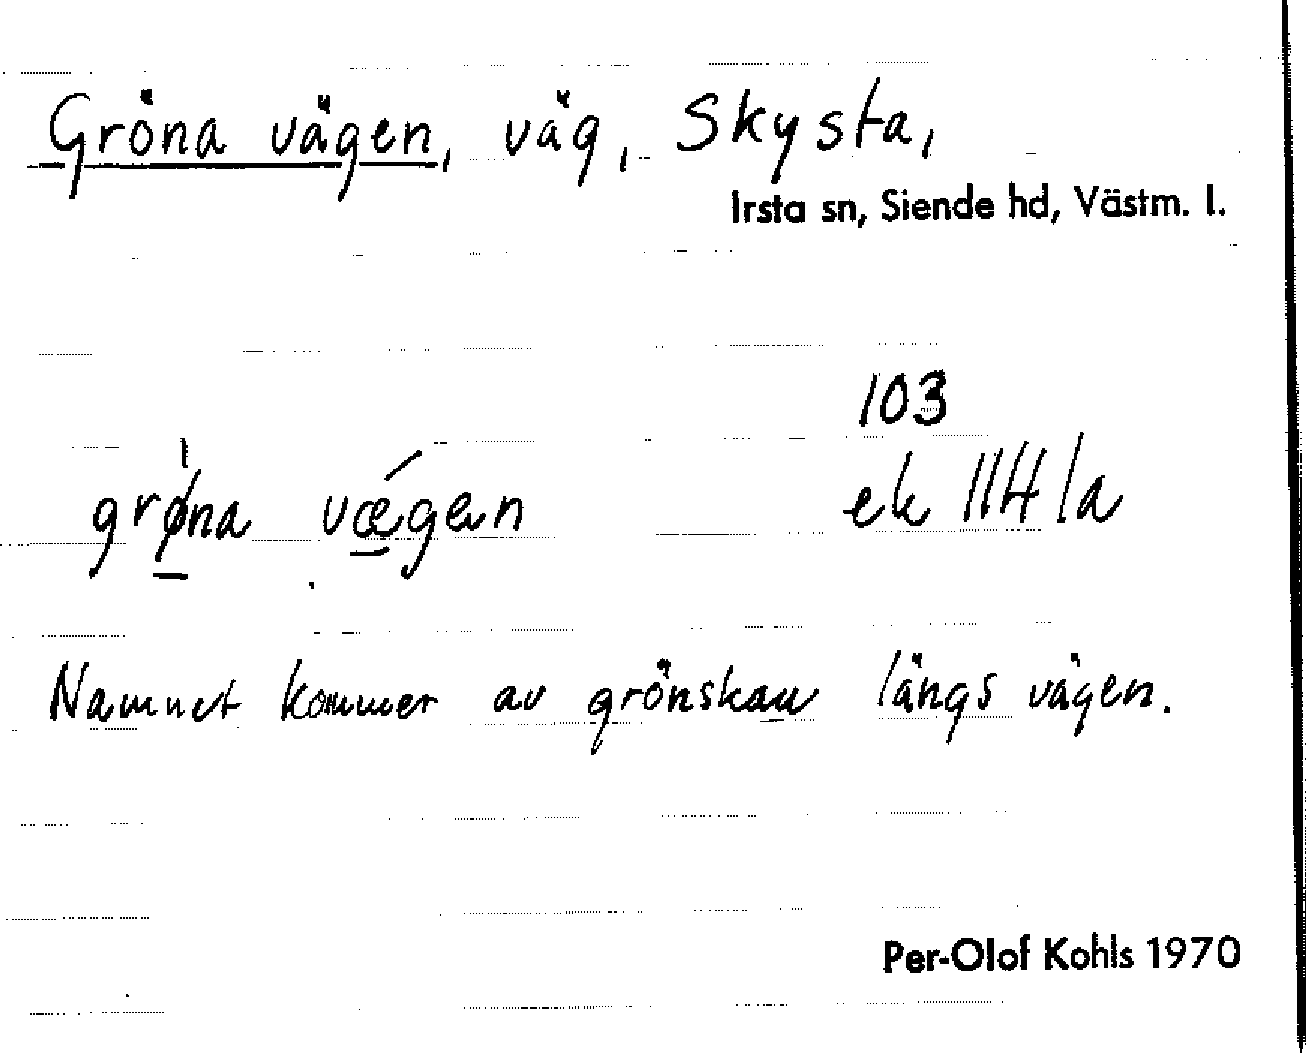 Gröna vägen, väg, Skysta,
Irsta sn, Siende hd, Västm. l.
103
grǿna vǽgen ek 11H 1a
Namnet kommer av grönskan längs vägen.
Per-Olof Kohls 1970